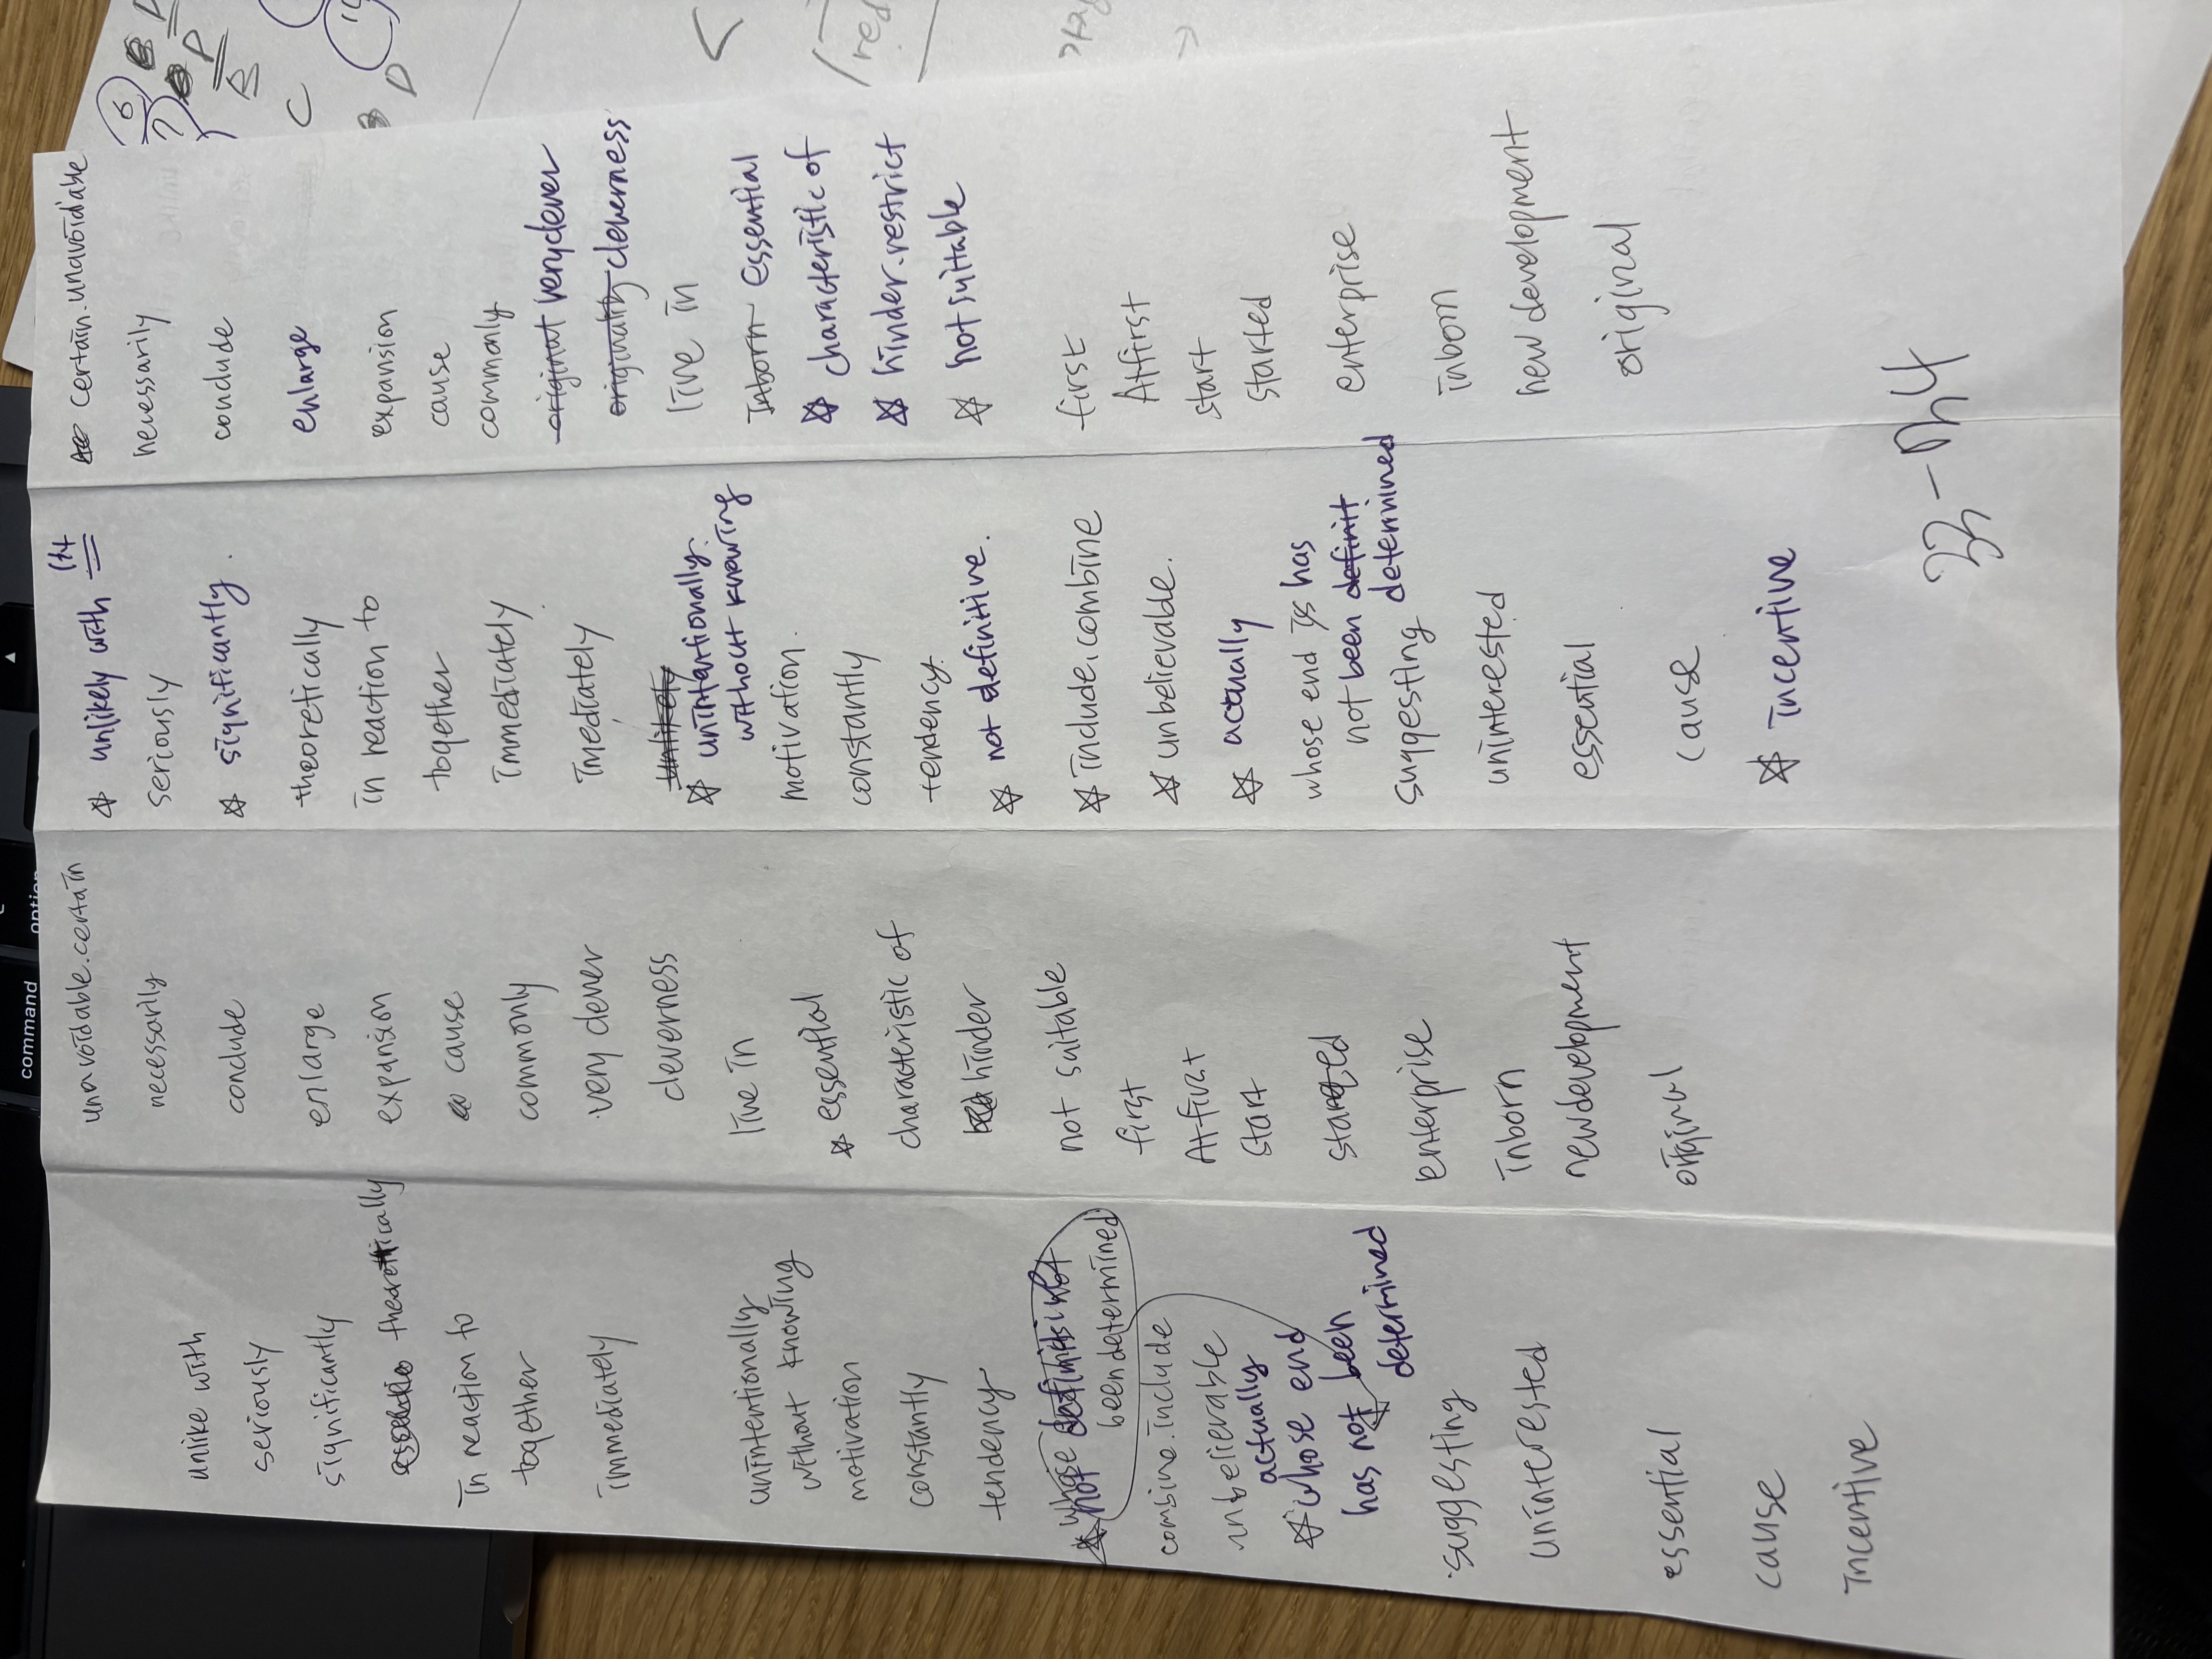 unlike with
seriously
significantly
theoretically
in reaction to
together
immediately
unintentionally
without knowing
motivation
constantly
tendency
whose
been determined
combine.include
unbelievable
actually
whose end
has not been
determined
suggesting
uninterested
essential
cause
incentive
unavoidable.certain
necessarily
conclude
enlarge
expansion
cause
commonly
very clever
cleverness
live in
essential
characteristic of
hinder
not suitable
first
At first
start
started
enterprise
inborn
new development
original
unlikely with
seriously
significantly.
theoretically
in reaction to
together
immediately
imediately
unintentionally.
without knowing
motivation.
constantly
tendency.
not definitive.
include.combine
unbelievable.
actually
whose end is has
not been definit
determined
suggesting
uninterested
essential
cause
incentive
certain.unavoidable
necessarily
conclude
enlarge
expansion
cause
commonly
original very clever
originality cleverness
live in
Inborn essential
characteristic of
hinder.restrict
not suitable
first
At first
start
started
enterprise
inborn
new development
original
command
option
C
D
P
B